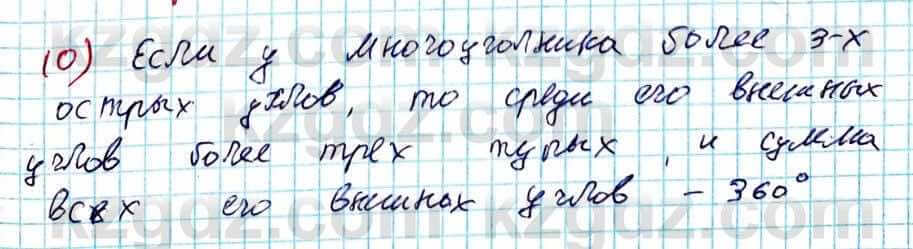 10) Если у многоугольника более 3-х
острых углов, то среди его внешних
углов более трех тупых, и сумма
всех его внешних углов - 360°